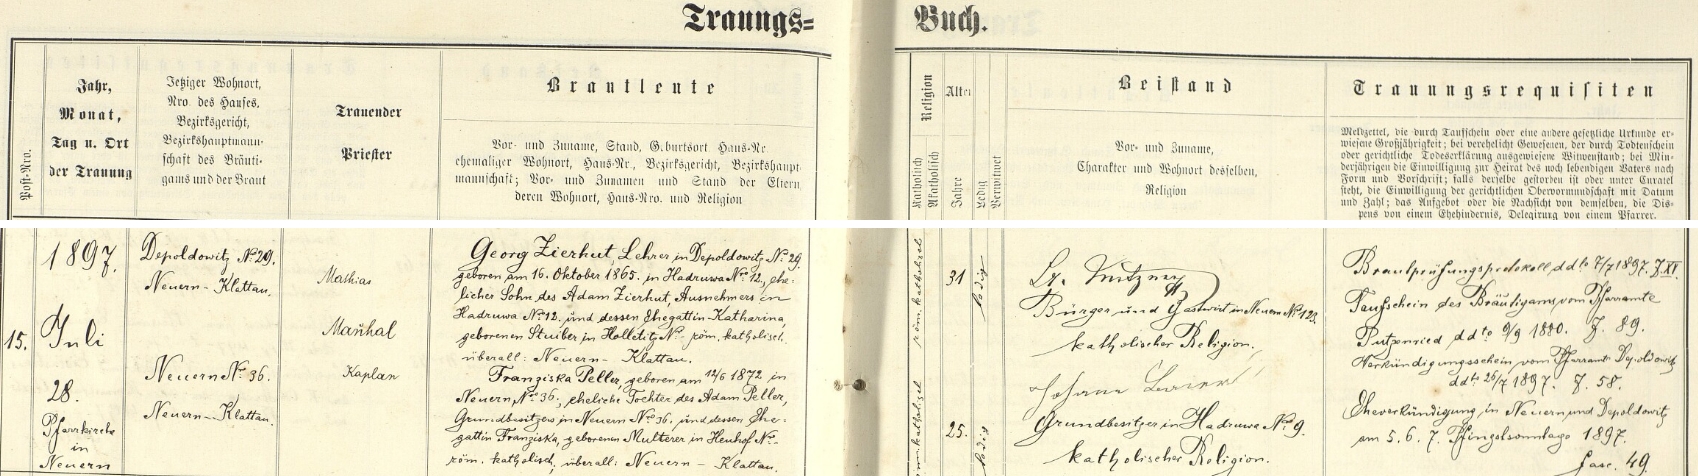 Trauungs=
Buch.
Post-Nro.
Jahr,
Monat,
Tag u. Ort
der Trauung
Jetziger Wohnort,
Nro. des Hauses,
Bezirksgericht,
Bezirkshauptmann-
schaft des Bräuti-
gams und der Braut
Trauender
Priester
Brautleute
Vor- und Zuname, Stand, G.burtsort Haus-Nr.
ehemaliger Wohnort, Haus-Nr., Bezirksgericht, Bezirkshaupt-
mannschaft; Vor- und Zunamen und Stand der Eltern,
deren Wohnort, Haus-Nro. und Religion
Religion
Katholisch
Akatholisch
Alter
Jahre
Ledig
Verwitwet
Beistand
Vor- und Zuname,
Charakter und Wohnort desselben,
Religion
Trauungsrequisiten
Meldzettel, die durch Taufschein oder eine andere gesetzliche Urkunde er-
wiesene Großjährigkeit; bei verehelicht Gewesenen, der durch Todtenschein
oder gerichtliche Todeserklärung ausgewiesene Witwenstand; bei Min-
derjährigen die Einwilligung zur Heirat des noch lebendigen Vaters nach
Form und Vorschrift; falls derselbe gestorben ist oder unter Curatel
steht, die Einwilligung der gerichtlichen Obervormundschaft mit Datum
und Zahl; das Aufgebot oder die Nachsicht von demselben, die Dis-
pens von einem Ehehindernis, Delegirung von einem Pfarrer.
15.
1897.
Juli
28.
Pfarrkirche
in
Neuern
Depoldowitz No 29.
Neuern - Klattau.
Neuern No 36.
Neuern - Klattau.
Mathias
Maňhal
Kaplan
Georg Zierhut, Lehrer in Depoldowitz No 29
geboren am 16. Oktober 1865. in Hadruwa No 12., ehe-
licher Sohn des Adam Zierhut, Ausnehmers in
Hadruwa No 12. und dessen Ehegattin Katharina,
geborenen Stuiber in Holletitz No röm. katholisch.
überall: Neuern - Klattau.
Franziska Peller, geboren am 12/6 1872 in
Neuern No 36., eheliche Tochter des Adam Peller,
Grundbesitzers in Neuern No 36. und dessen Ehe-
gattin Franziska, geborenen Multerer in Heuhof No
röm. katholisch, überall: Neuern - Klattau.
röm. katholisch
31
ledig
25.
ledig
Bürger und Gastwirt in Neuern No 129.
katholischer Religion.
Grundbesitzer in Hadruwa No 9.
katholischer Religion.
Brautprüfungsprotokoll ddto 7/7 1897. J. XI.
Taufschein des Bräutigams vom Pfarramte
ddto 9/9 1880. J. 89.
Verkündigungsschein vom Pfarramte Depoldowitz
ddto 26/7 1897. J. 58.
Eheverkündigung in Neuern und Depoldowitz
am 5. 6. 7. Pfingstsonntage 1897.
fasc. 49.